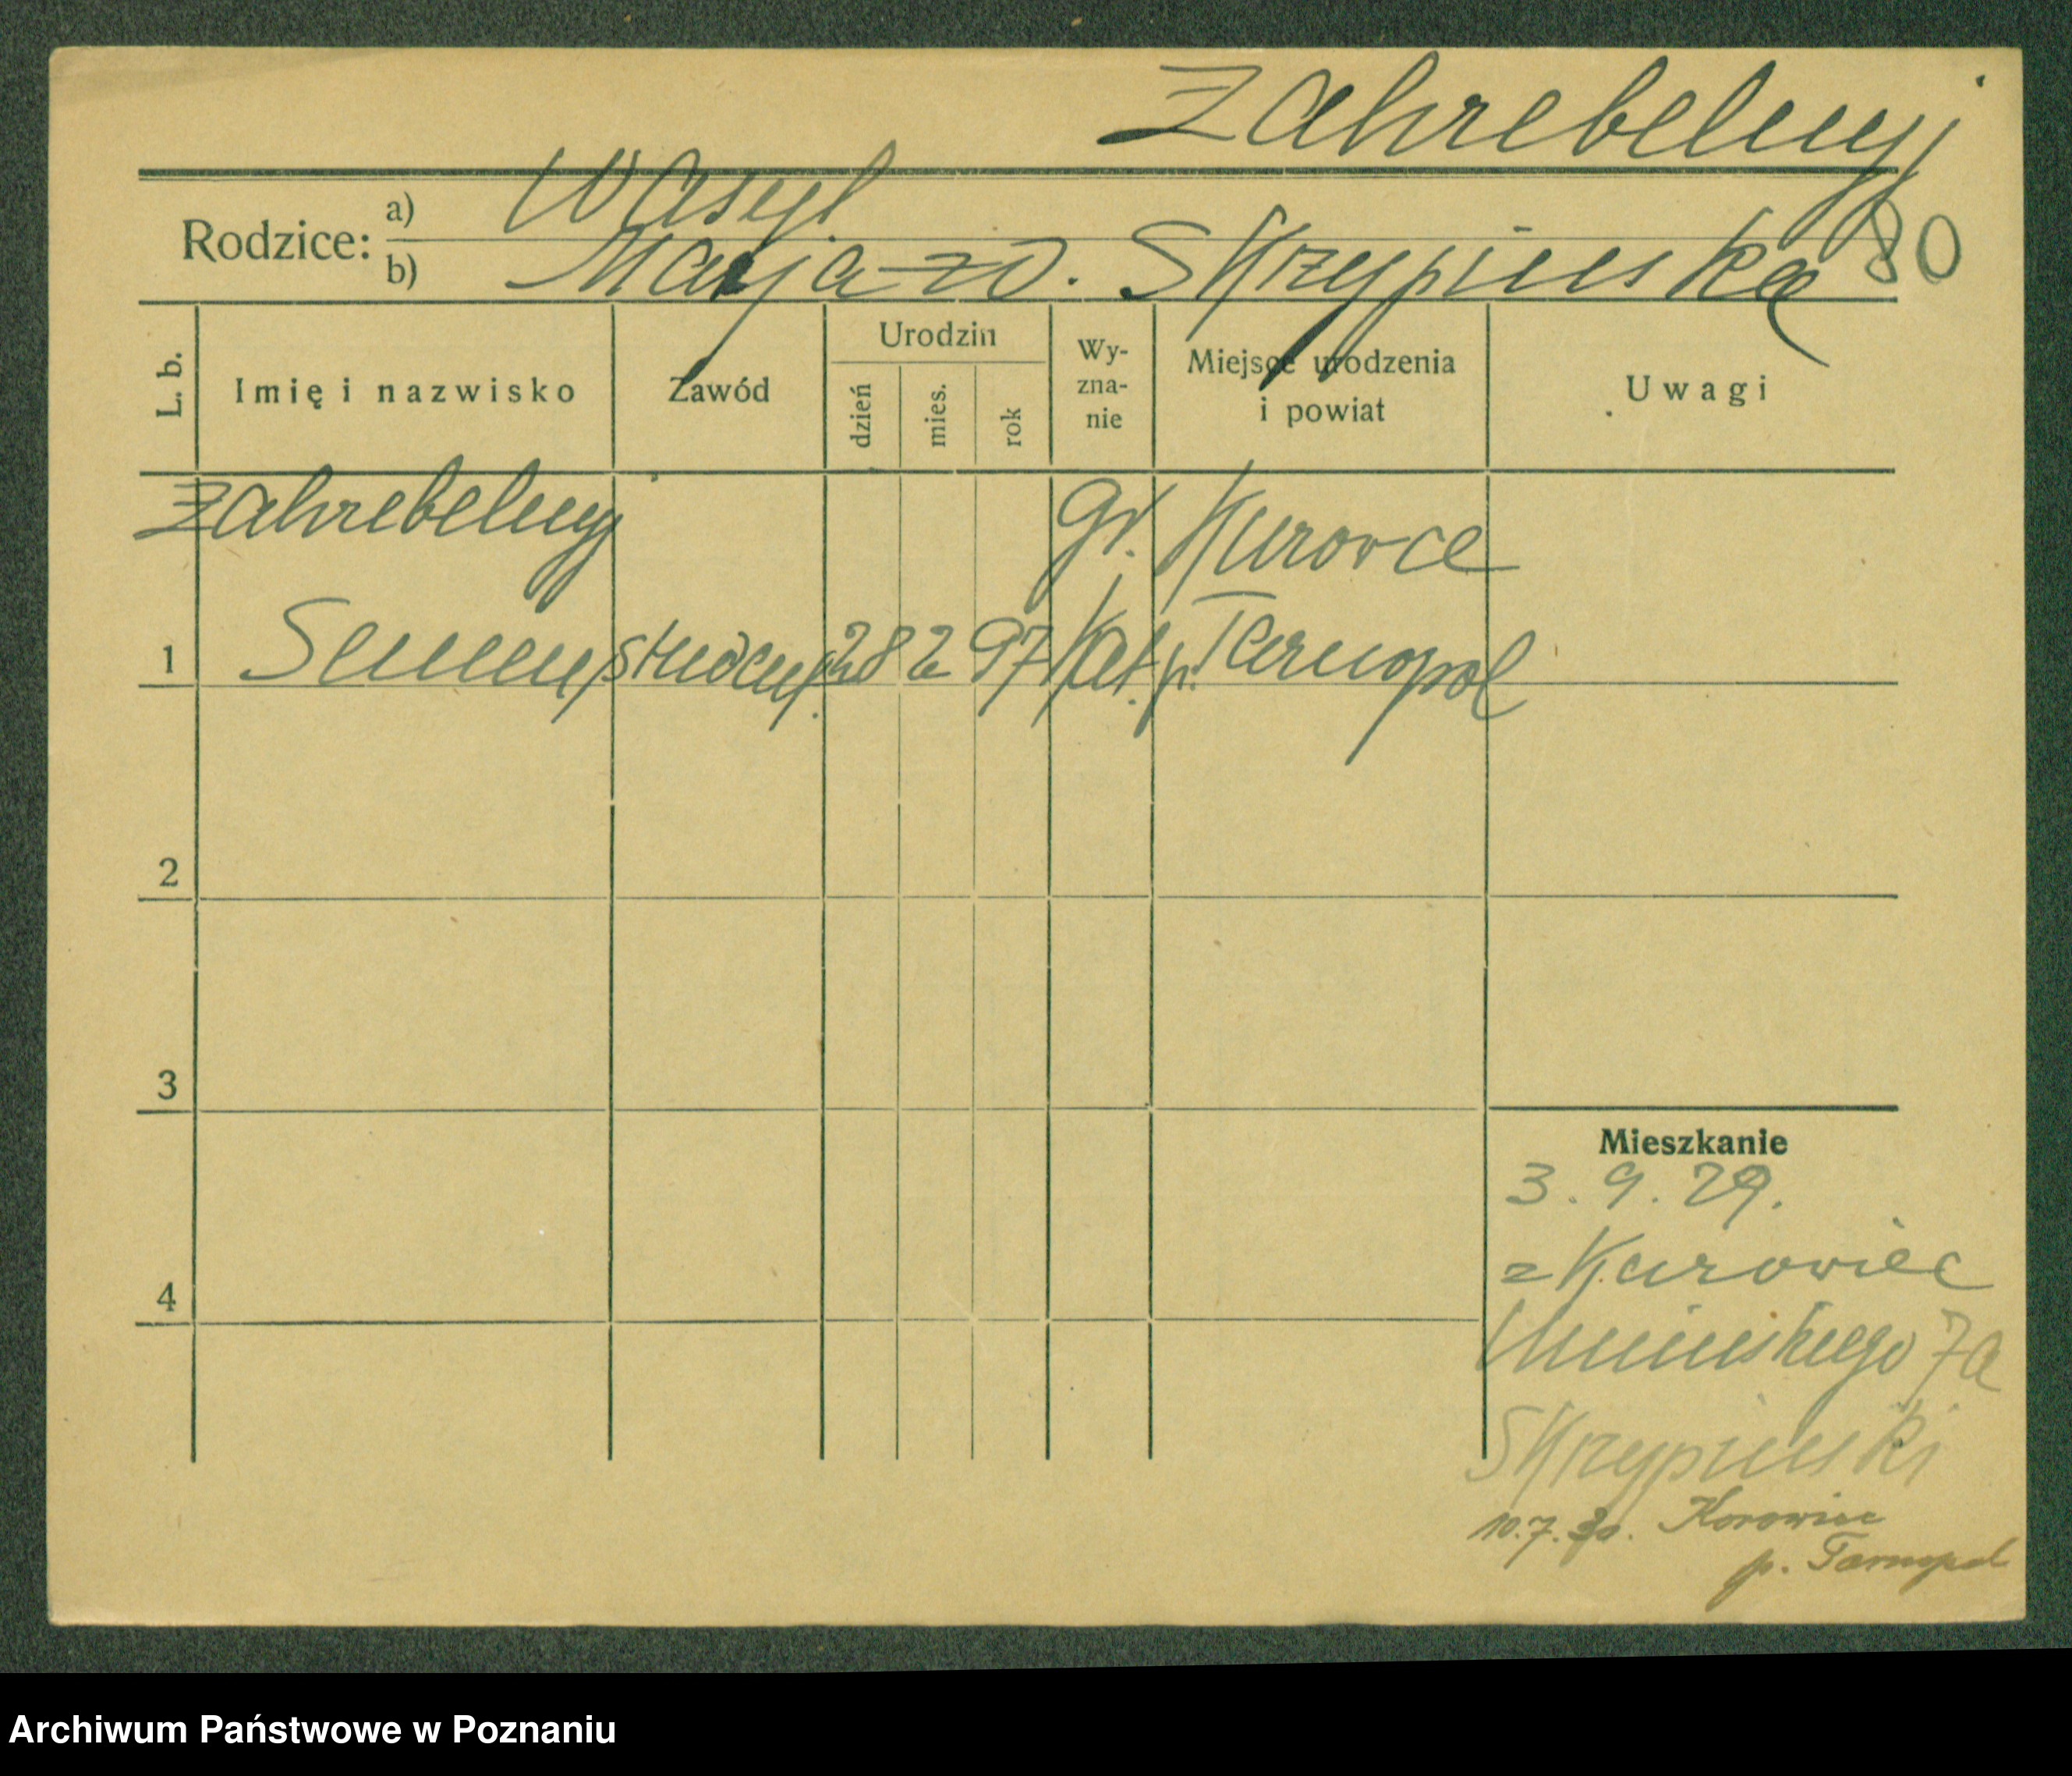 Zahrebelnyj
Rodzice: a) Wasyl
b) Marja zd. Skrzypińska 80
L. b. Imię i nazwisko Zawód Urodzin dzień mies. rok Wy-zna-nie Miejsce urodzenia i powiat Uwagi
Zahrebelnyj gr. Kurovce
1 Semen student 28 2 97 Kat. p. Tarnopol
2
3
Mieszkanie
3. 9. 29.
z Kurowiec
4
7a
Skrzypiński
10.7.30. Korowiec
p. Tarnopol
Archiwum Państwowe w Poznaniu